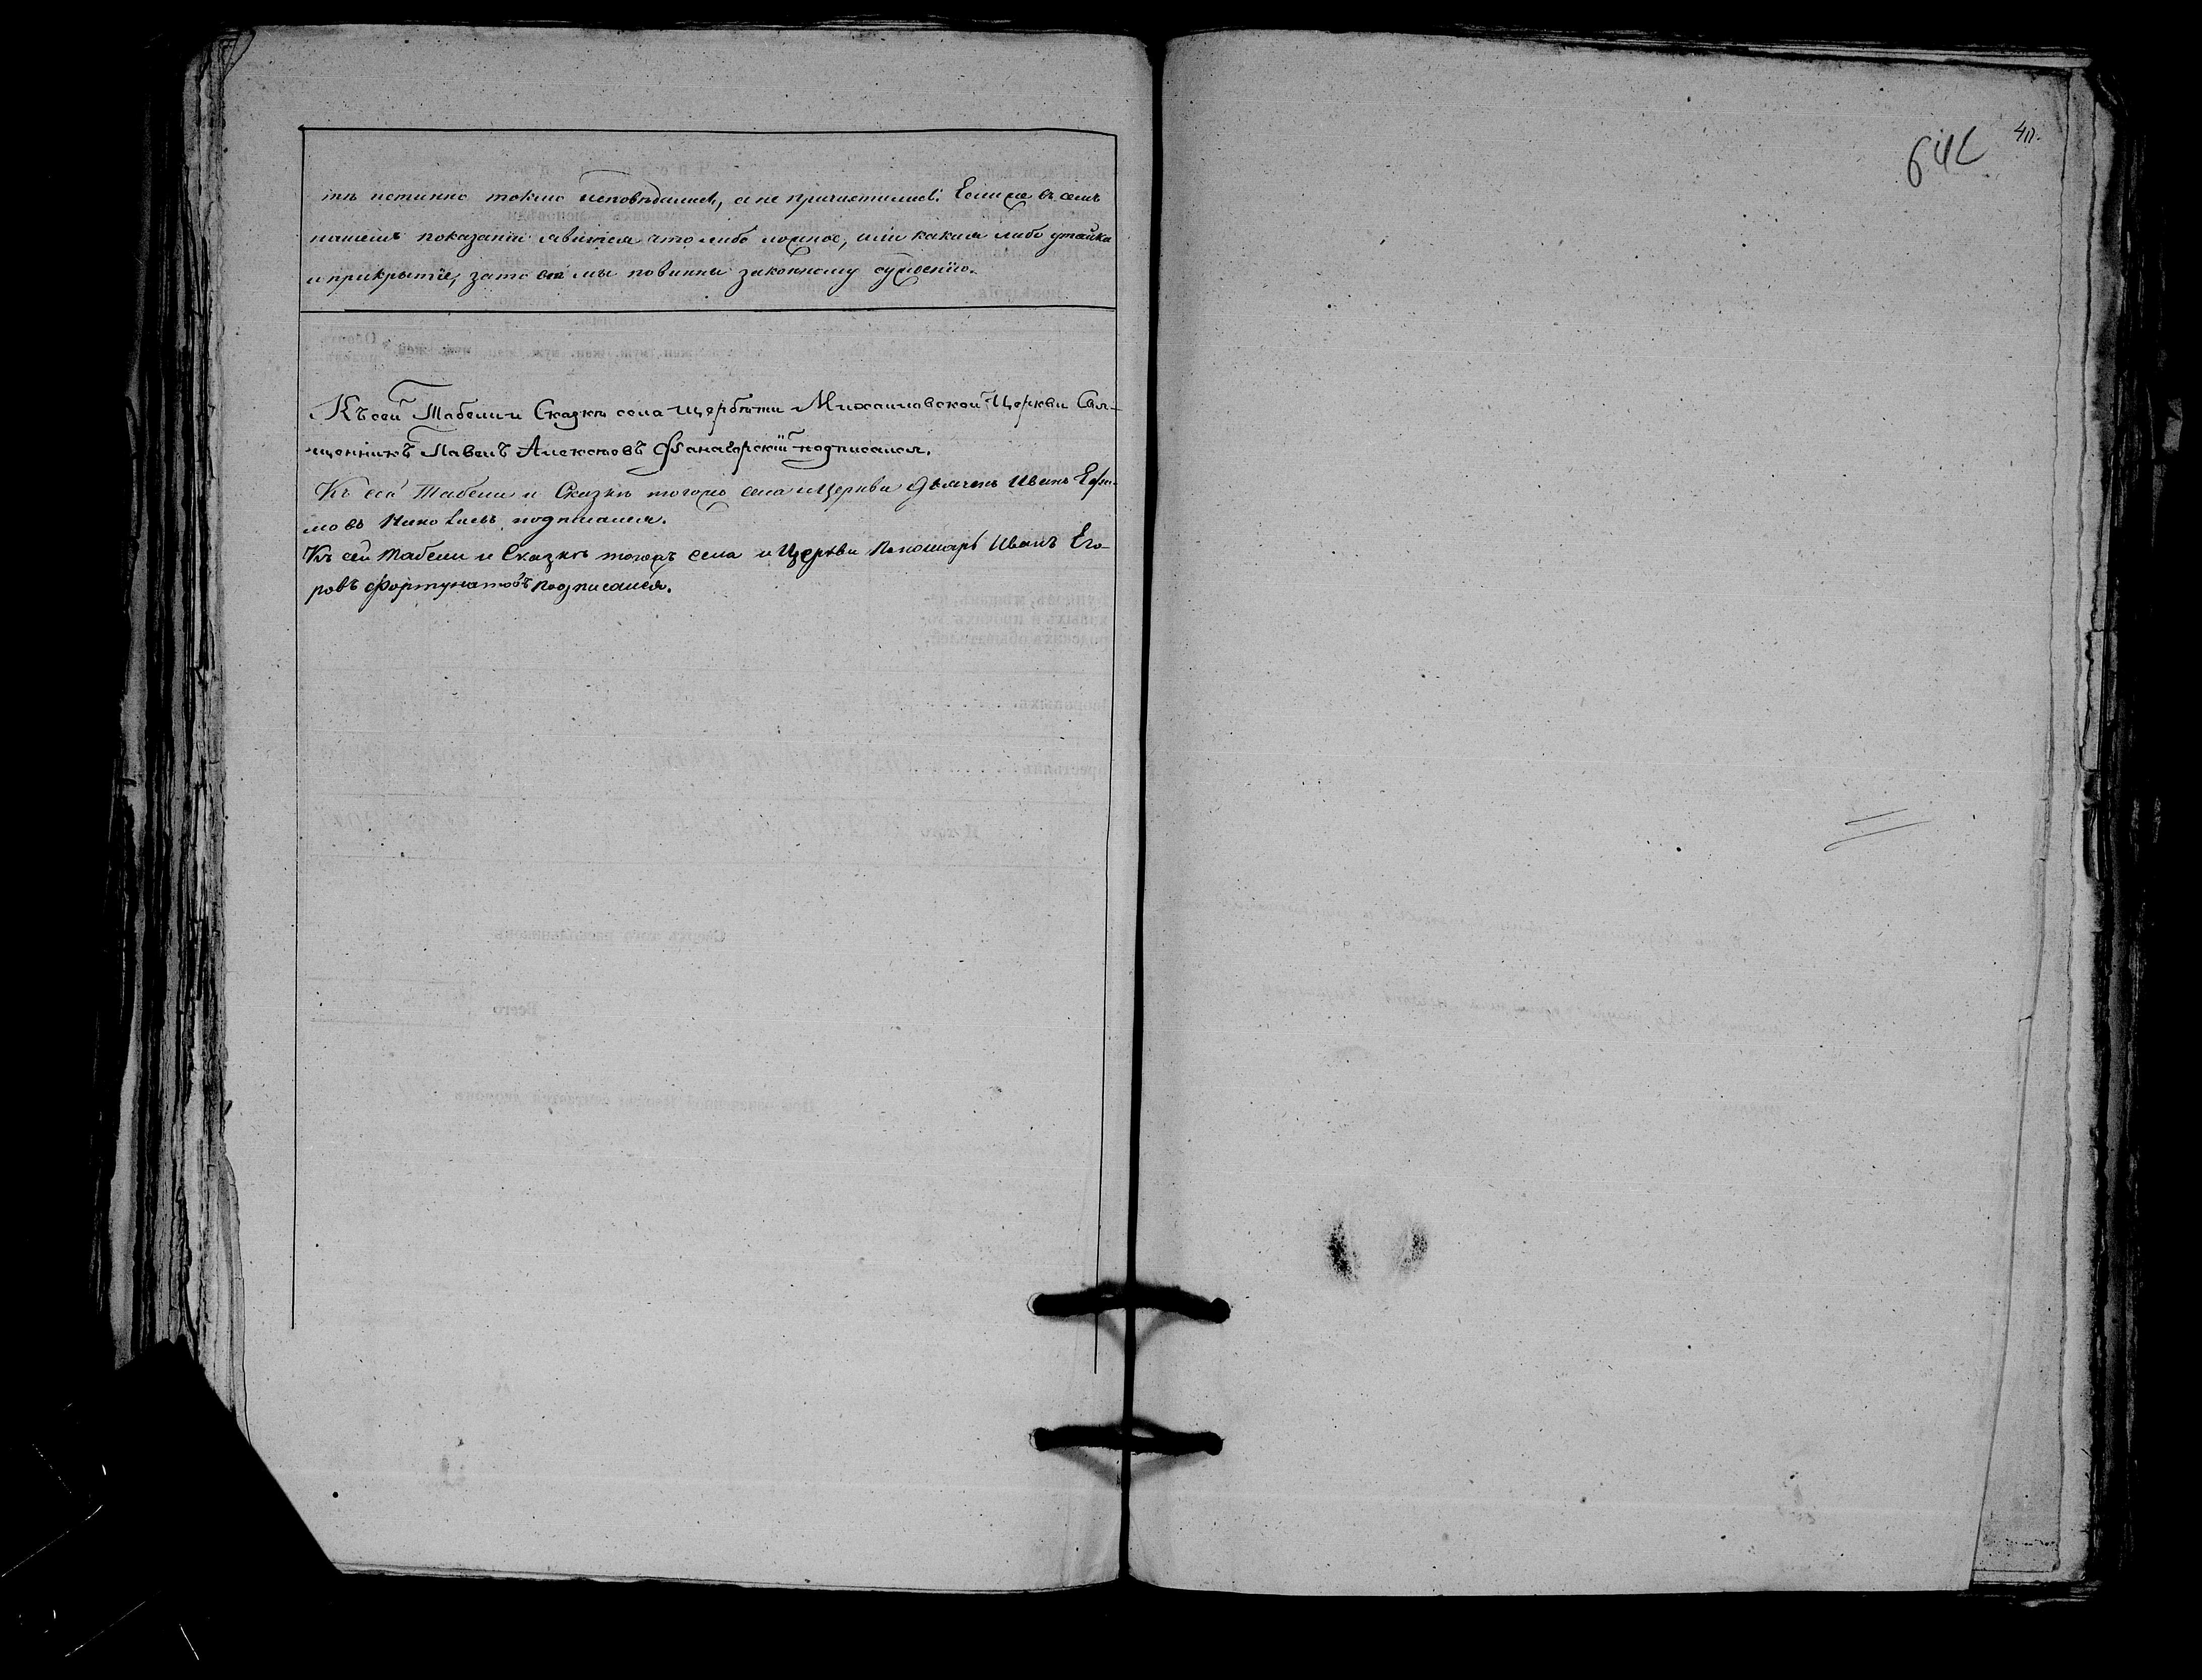 тѣ истинно токмо исповѣдались, а не причастились. Если же въ семъ
нашемъ показаніи явится что либо ложное, или какая либо утайка
и прикрытіе, за то мы повинны законному сужденію.
Къ сей Табели и Сказкѣ села Щербѣти Михаиловской Церкви Свя-
щенникъ Павелъ Алексѣевъ Фанагорскій подписался.
Къ сей Табели и Сказкѣ тогожъ села и Церкви Дьячекъ Иванъ
подписался.
Къ сей Табели и Сказкѣ тогожъ села и Церкви Пономарь Иванъ Его-
ровъ Фортунатовъ подписался.